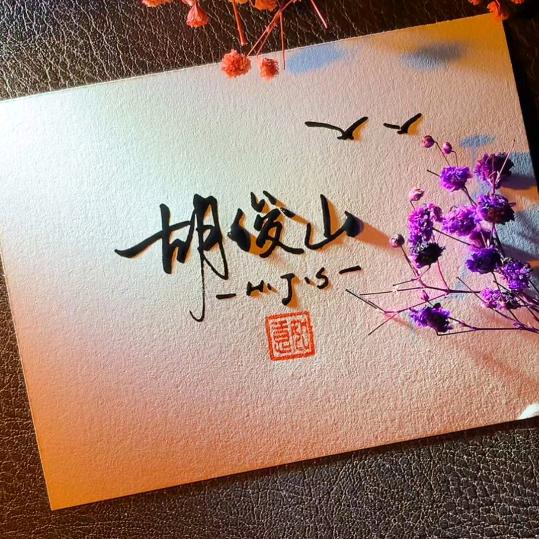 胡俊山
-H·J·S-